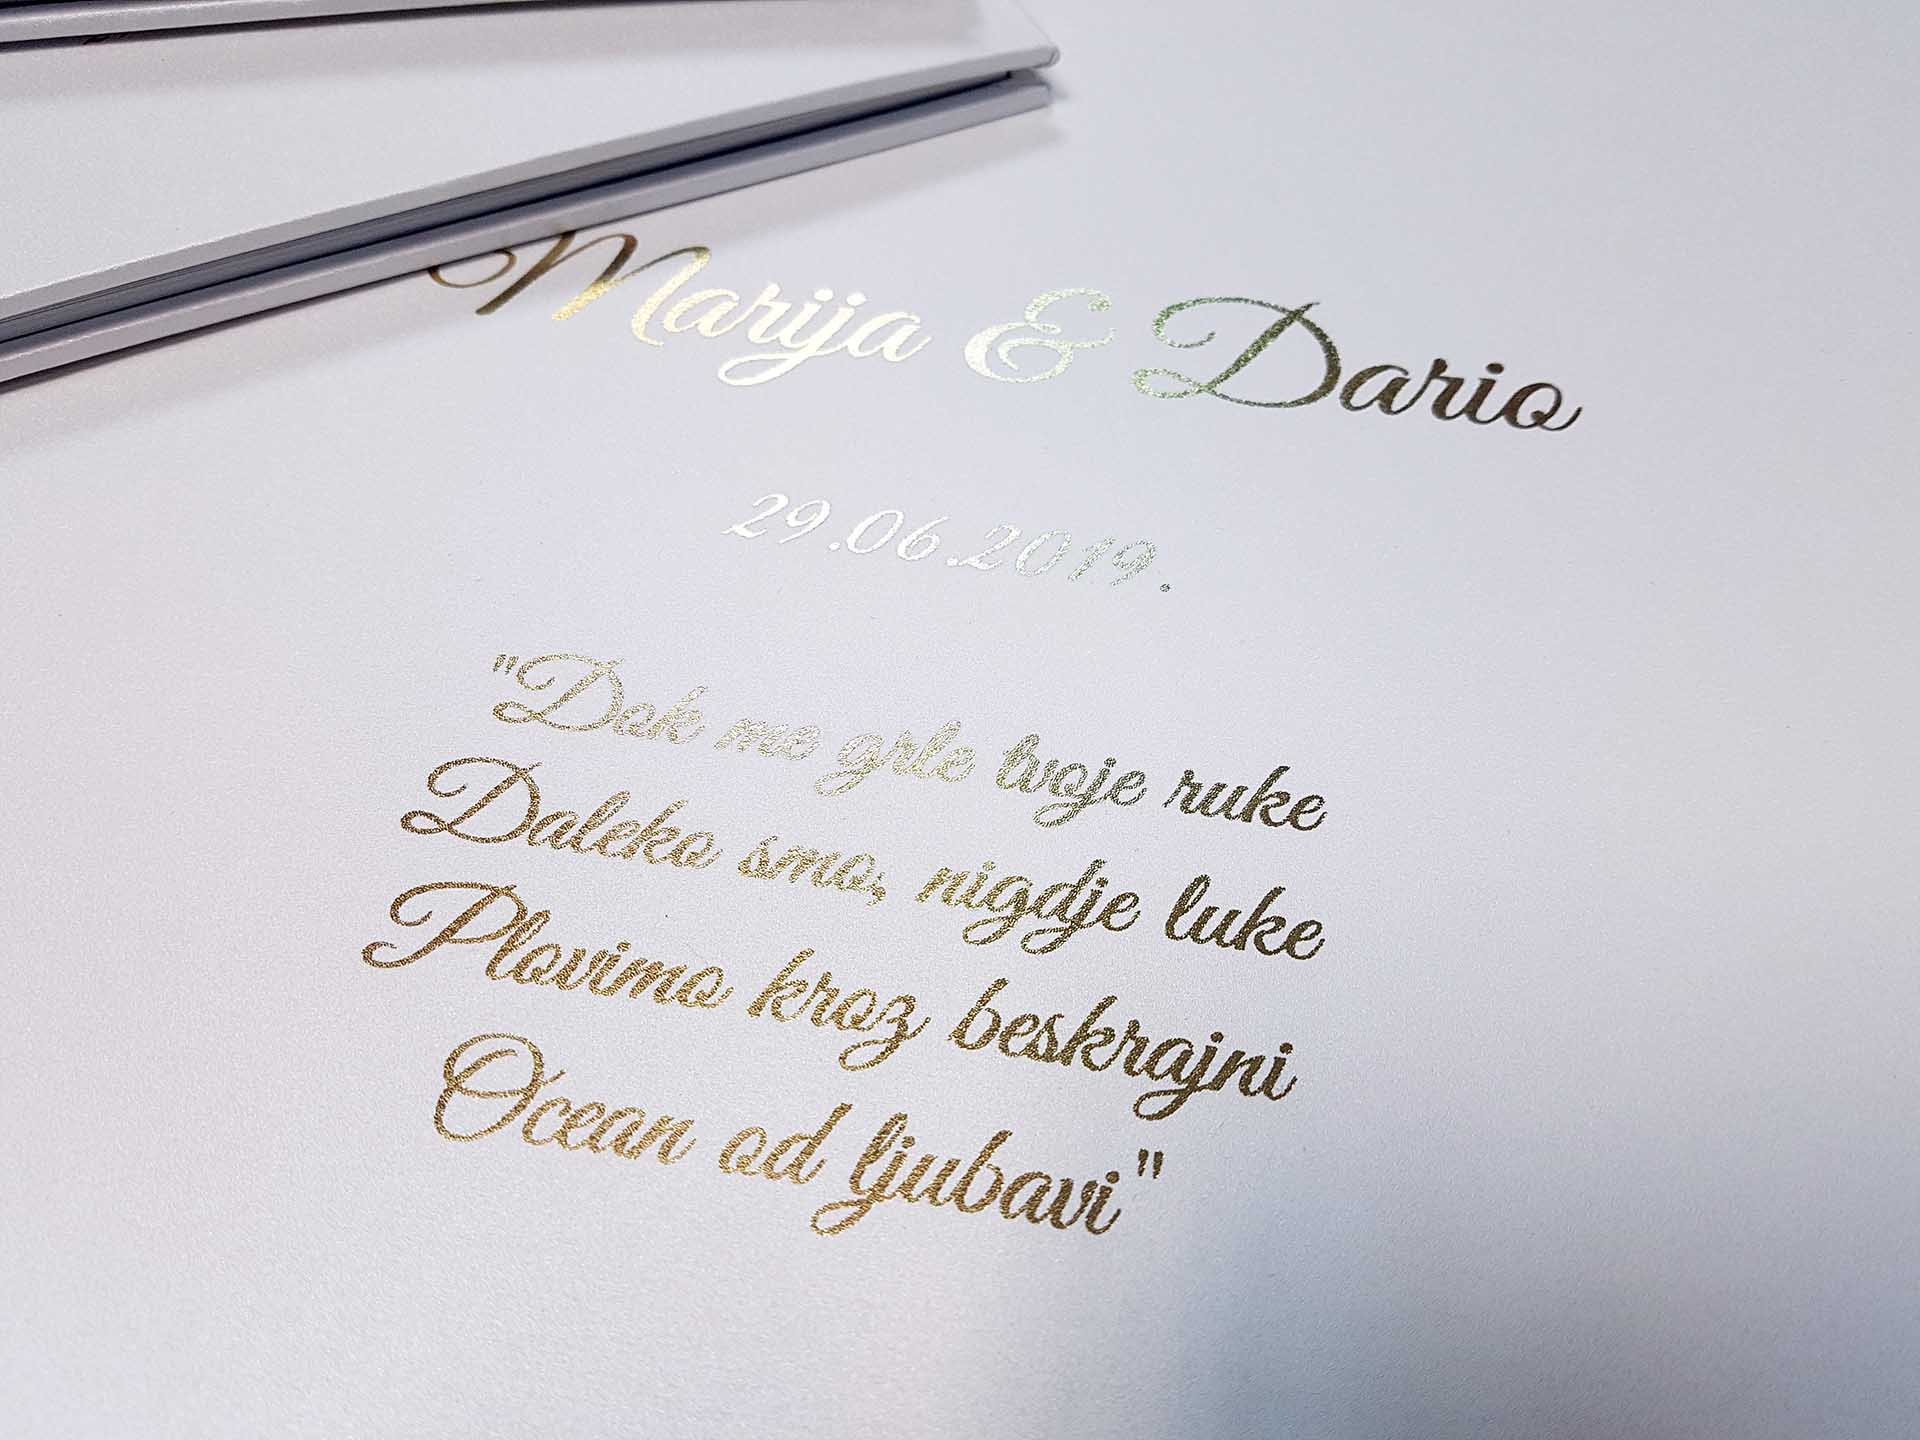 Marija & Dario
29.06.2019.
"Dok me grle tvoje ruke
Daleko smo, nigdje luke
Plovimo kroz beskrajni
Ocean od ljubavi"